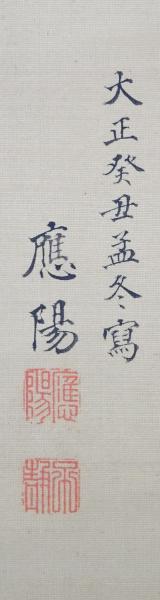 大正癸丑孟冬寫
應陽
應陽